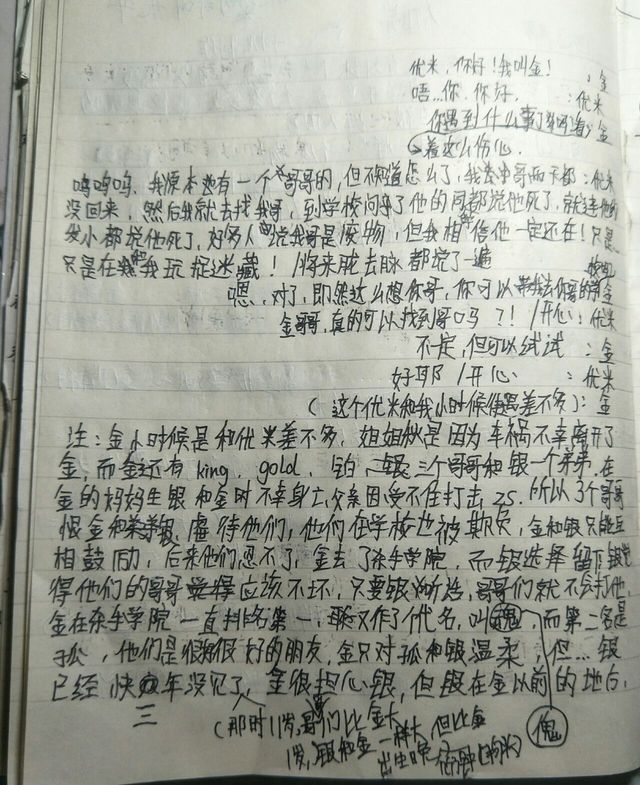 优米，你好！我叫金！ ：金
唔…你，你好． ：优米
你遇到什么事了吗？看：金
着这么伤心．
呜呜呜．我原本也有一个哥哥的，但不知道怎么了，我哥哥两天都：优米
没回来，然后我就去找我哥，到学校问了他的同都说他死了，就连他的
发小都说他死了，好多人说我哥是废物，但我相信他一定还在！只是…
只是在和我玩捉迷藏！/将来龙去脉都说了一遍
嗯，对了，即然这么想你哥，你可以带我去你哥的：金
金哥哥，真的可以找到哥吗？！/开心：优米
不一定，但可以试试 ：金
好耶 /开心 ：优米
（这个优米和我小时候差不多）：金
注：金小时候是和优米差不多，姐姐秋是因为车祸不幸离开了
金，而金还有king、gold、铂、三个哥哥和银一个弟弟．在
金的妈妈生银和金时不幸身亡，父亲因受不住打击，zs．所以3个哥哥
恨金和银，虐待他们，他们在学校也被欺负，金和银只能互
相鼓励，后来他们忍不了，金去了杀手学院，而银选择留下，银觉
得他们的哥哥应该不坏，只要银渐远，哥哥们就不会打他，
金在杀手学院一直排名第一，又作了代名，叫魂，而第二名是
孤，他们是很好的朋友，金只对孤和银温柔，但…银
已经快三年没见了，金很担心银，但银在金以前的地位，
傀
（那时11岁，哥哥们比金大
1岁，银和金一样大，但比金
出生晚